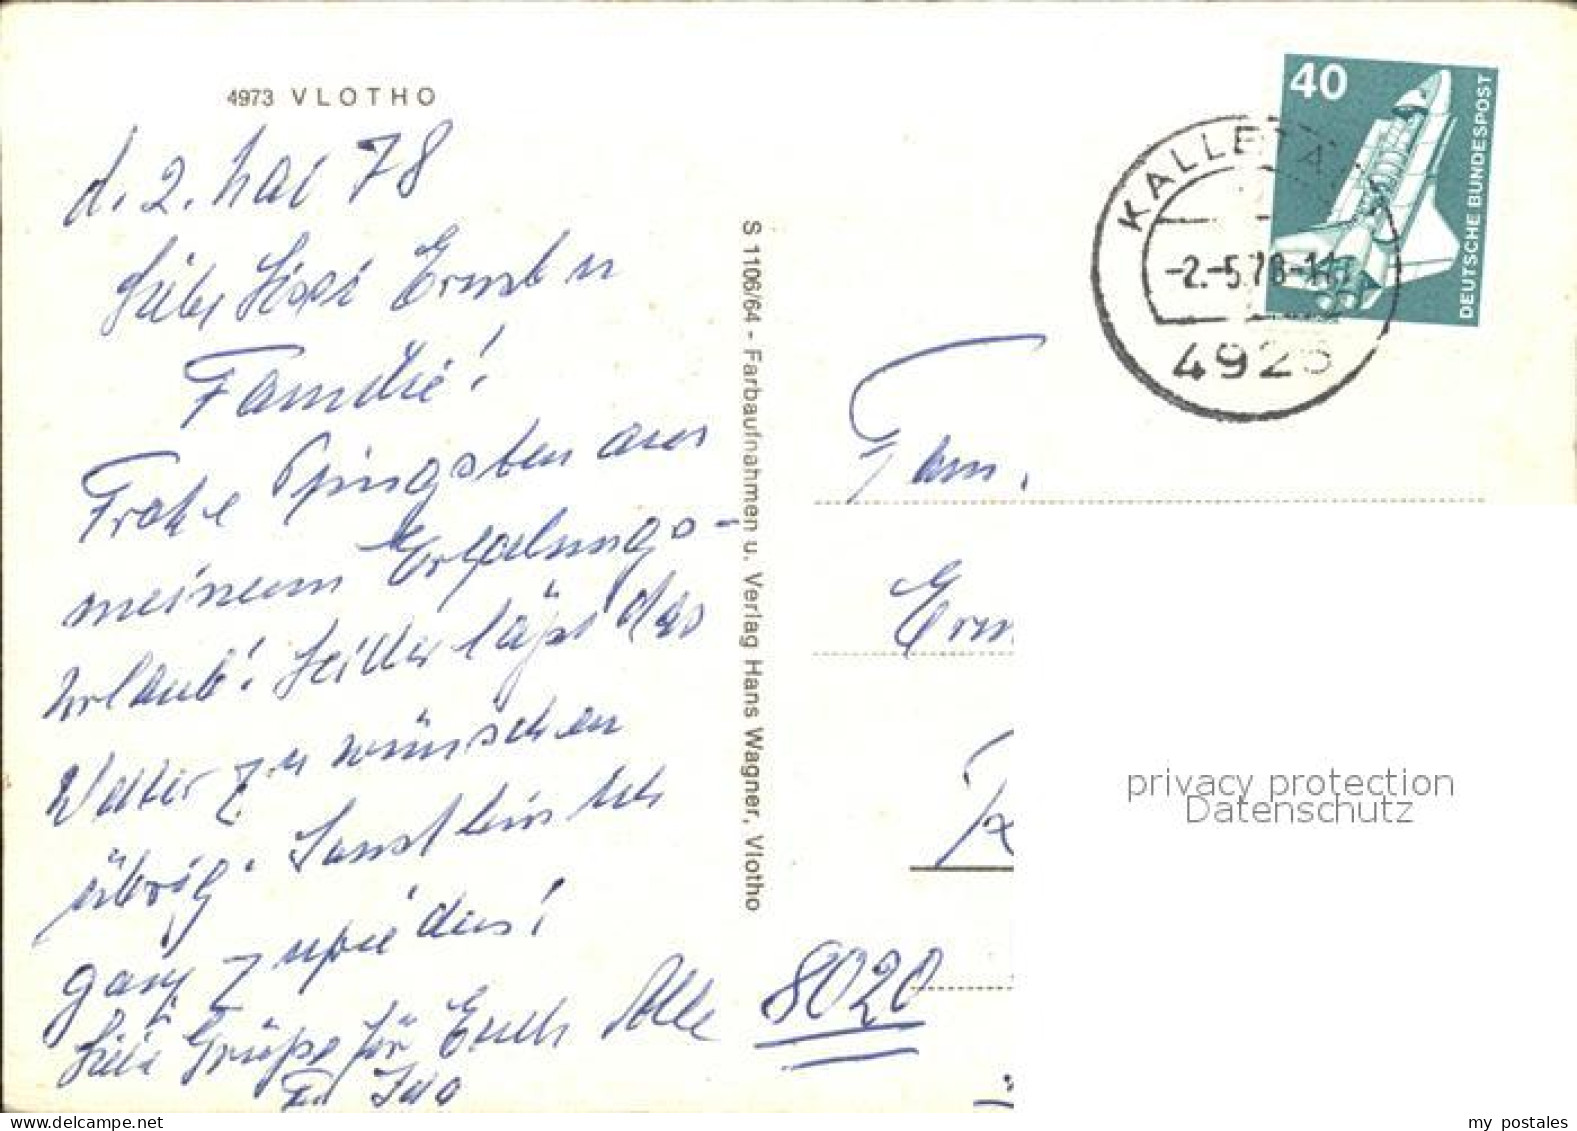 4973 VLOTHO
d. 2. Mai 78
Familie!
Frohe Pfingsten aus
meinem Erholungs-
urlaub! Leider läßt das
Wetter zu wünschen
übrig. Sonst bin ich
ganz zufrieden!
Liebe Grüße für Euch Alle
S 1106/64 - Farbaufnahmen u. Verlag Hans Wagner, Vlotho
40
DEUTSCHE BUNDESPOST
KALLETAL
-2.-5.78-
Fam.
8020
privacy protection
Datenschutz
my postales